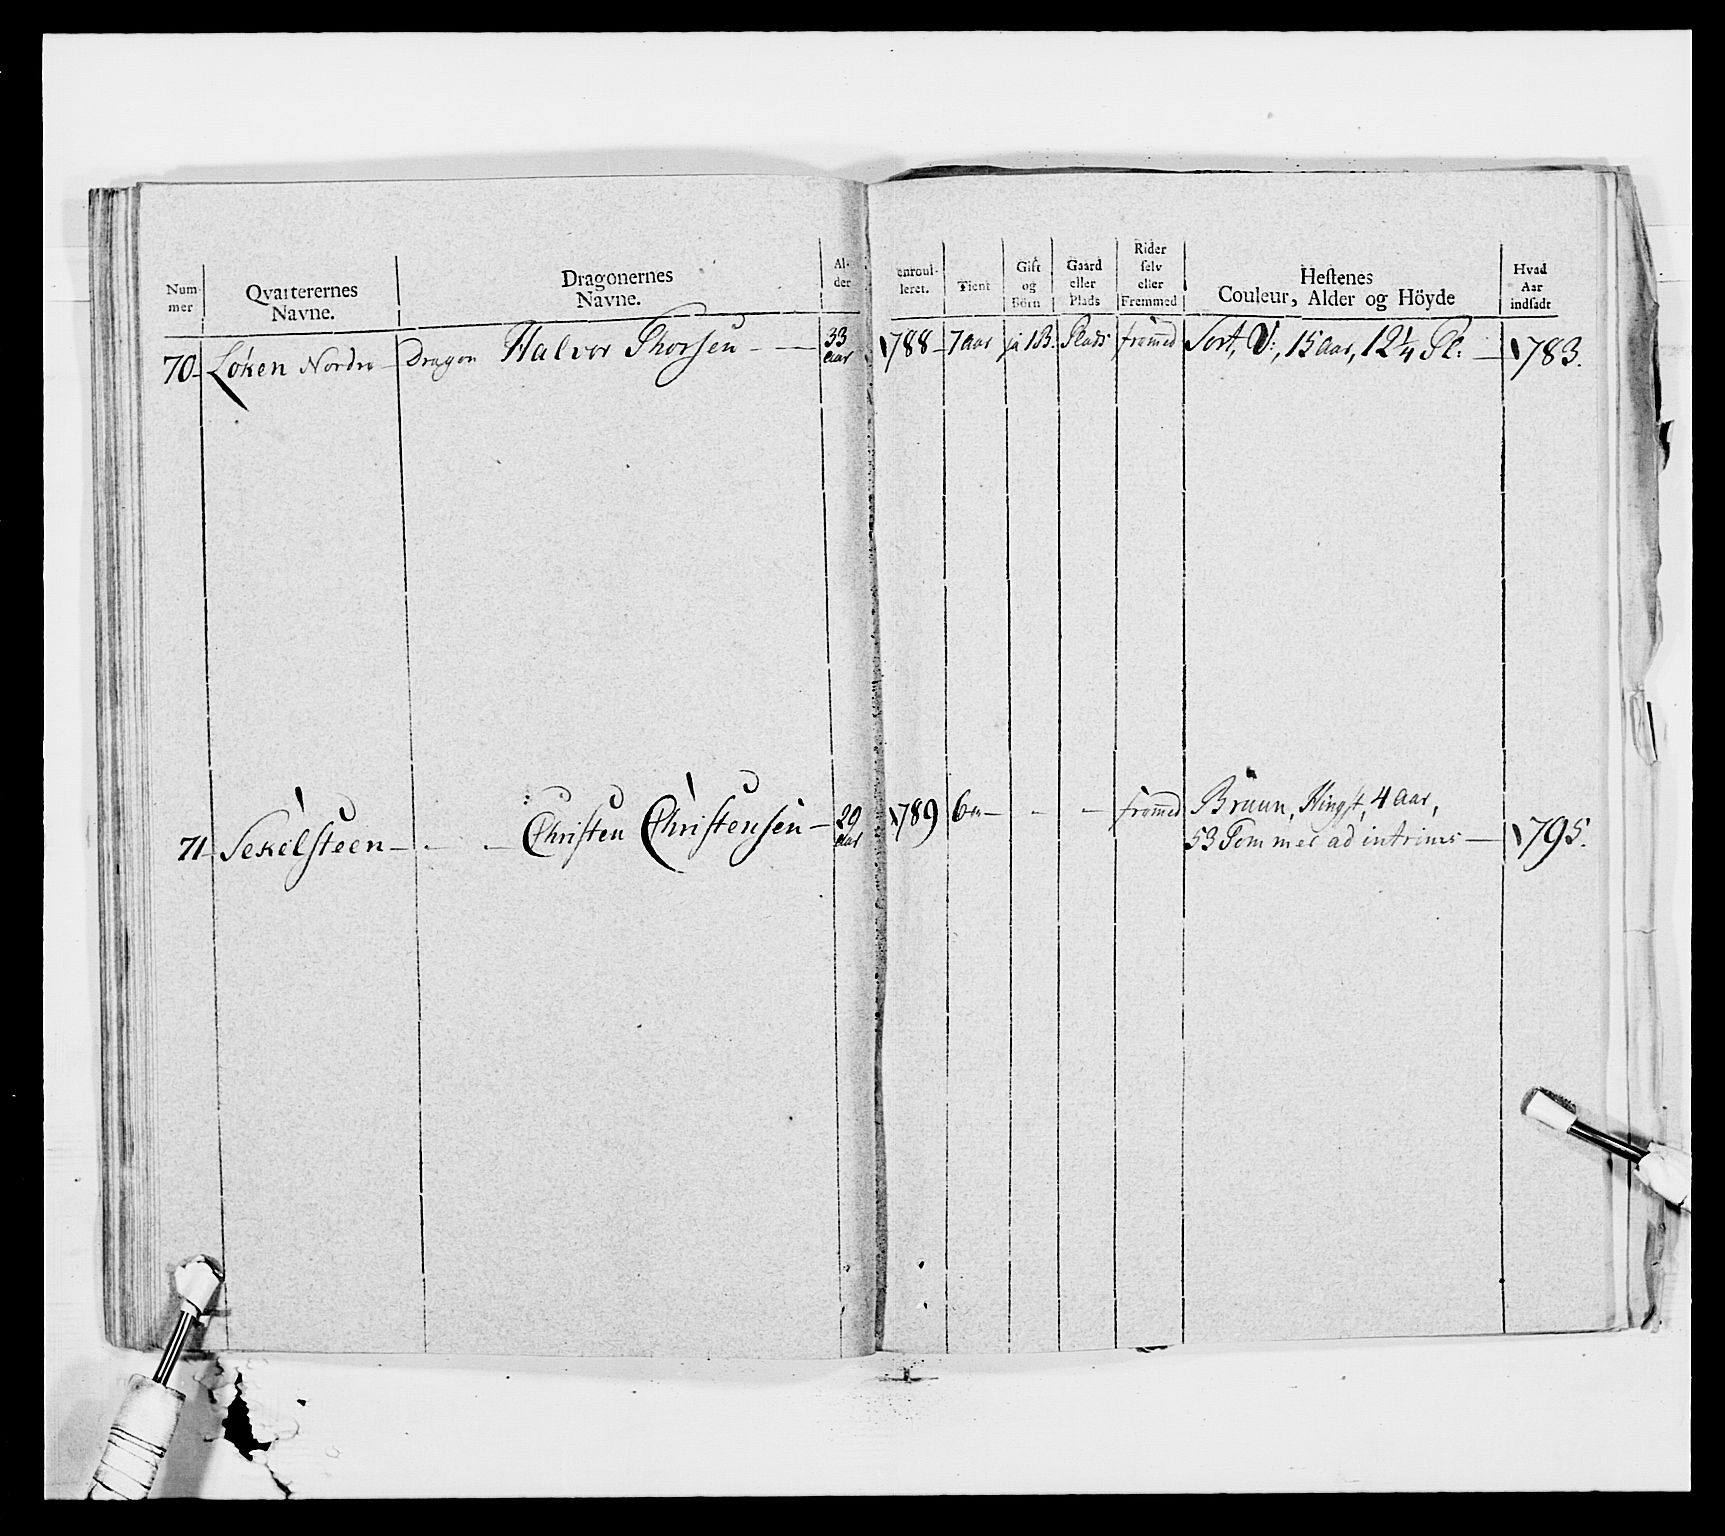 Num- mer
Qvarterernes Navne.
Dragonernes Navne.
Al- der
enroul- leret.
Tient
Gift og Börn
Gaard eller Plads
Rider selv eller Fremmed
Hestenes Couleur, Alder og Höyde
Hvad Aar indsadt
70 - Løken Nordre - Dragon Halvor Thorsen - — 33 aar 1788 - 7 aar ja 1B. Plads fromed Sort, V:, 15 aar, 12 1/4 Pl: — 1783.
71 - Sekelsteen - - - Christen Christensen - 29 aar 1789 6 - - - fromed Bruun, Hingst, 4 aar,
53 Tommel ad intrims — 1795.